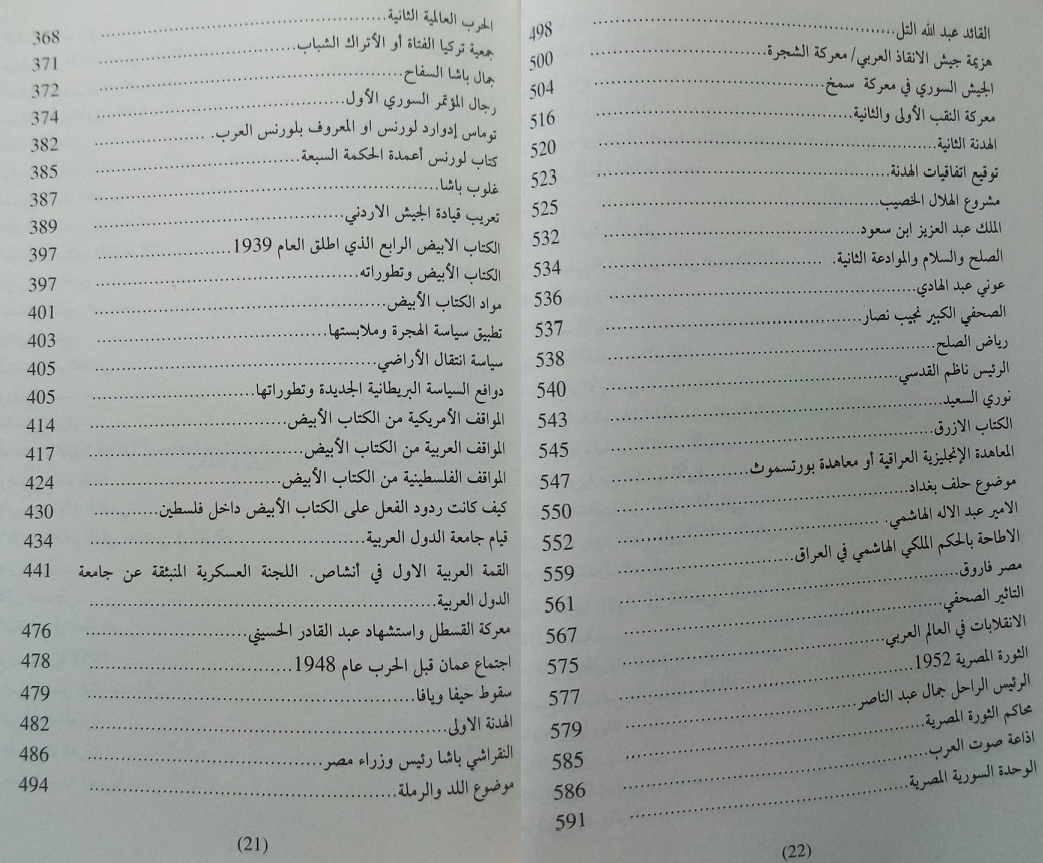 الحرب العالمية الثانية.................... 368
جمعية تركيا الفتاة أو الأتراك الشباب.................... 371
جمال باشا السفاح.................... 372
رجال المؤتمر السوري الأول.................... 374
توماس إدوارد لورنس او المعروف بلورنس العرب. .................... 382
كتاب لورنس أعمدة الحكمة السبعة.................... 385
غلوب باشا.................... 387
تعريب قيادة الجيش الاردني.................... 389
الكتاب الابيض الرابع الذي اطلق العام 1939.................... 397
الكتاب الأبيض وتطوراته.................... 397
مواد الكتاب الأبيض.................... 401
تطبيق سياسة الهجرة وملابستها.................... 403
سياسة انتقال الأراضي.................... 405
دوافع السياسة البريطانية الجديدة وتطوراتها.................... 405
المواقف الأمريكية من الكتاب الأبيض.................... 414
المواقف العربية من الكتاب الأبيض.................... 417
المواقف الفلسطينية من الكتاب الأبيض.................... 424
كيف كانت ردود الفعل على الكتاب الأبيض داخل فلسطين.................... 430
قيام جامعة الدول العربية.................... 434
القمة العربية الاول في أنشاص. اللجنة العسكرية المنبثقة عن جامعة 441
الدول العربية....................
معركة القسطل واستشهاد عبد القادر الحسيني.................... 476
اجتماع عمان قبل الحرب عام 1948.................... 478
سقوط حيفا ويافا.................... 479
الهدنة الاولى.................... 482
النقراشي باشا رئيس وزراء مصر.................... 486
موضوع اللد والرملة.................... 494
(21)
القائد عبد الله التل.................... 498
هزيمة جيش الانقاذ العربي/ معركة الشجرة.................... 500
الجيش السوري في معركة سمخ.................... 504
معركة النقب الأولى والثانية.................... 516
الهدنة الثانية.................... 520
توقيع اتفاقيات الهدنة.................... 523
مشروع الهلال الخصيب.................... 525
الملك عبد العزيز ابن سعود.................... 532
الصلح والسلام والموادعة الثانية. .................... 534
عوني عبد الهادي.................... 536
الصحفي الكبير نجيب نصار.................... 537
رياض الصلح.................... 538
الرئيس ناظم القدسي.................... 540
نوري السعيد.................... 543
الكتاب الازرق.................... 545
المعاهدة الإنجليزية العراقية أو معاهدة بورتسموث.................... 547
موضوع حلف بغداد.................... 550
الامير عبد الاله الهاشمي. .................... 552
الاطاحة بالحكم الملكي الهاشمي في العراق.................... 559
مصر فاروق.................... 561
التاثير الصحفي.................... 567
الانقلابات في العالم العربي.................... 575
الثورة المصرية 1952.................... 577
الرئيس الراحل جمال عبد الناصر.................... 579
محاكم الثورة المصرية.................... 585
اذاعة صوت العرب.................... 586
الوحدة السورية المصرية.................... 591
(22)